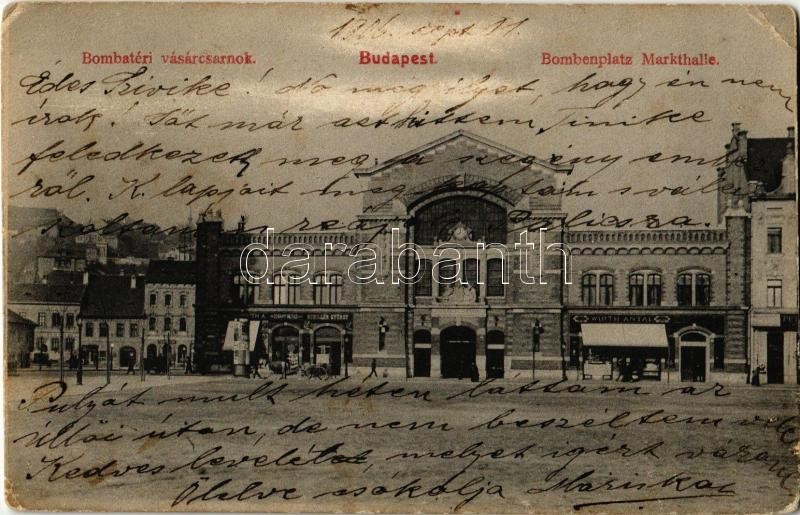 1906. sept 11.
Bombatéri vásárcsarnok. Budapest. Bombenplatz Markthalle.
Édes Szivike! No meg éljet, hogy én nem
írok! Sőt már azt hittem, Tinike
feledkezett meg a szegény ember
ről. K. lapjait meg kaptam s vála
szoltam
darabanth
WIRTH ANTAL
Pulyát mult héten láttam az
üllői úton, de nem beszéltem vele
Kedves levelét, melyet igért várom
Ölelve csókolja Mariska